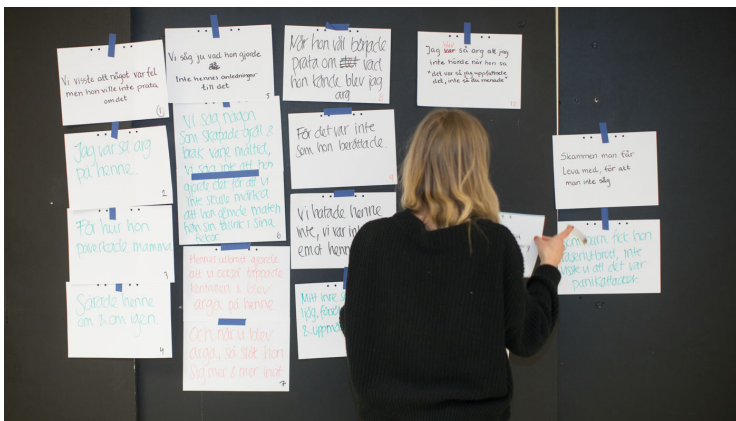 Vi visste att något var fel
men hon ville inte prata
om det
1
Jag var så arg
på henne.
2
För hur hon
påverkade mamma
3
Sårade henne
om & om igen.
4
Vi såg ju vad hon gjorde
Inte hennes anledningar
till det
5
Vi såg någon
som skapade gräl &
bråk varje måltid,
vi såg inte att hon
gjorde det för att vi
inte skulle märka
att hon gömde maten
från sin tallrik i sina
fickor
6
Hennes utbrott gjorde
att vi också tappade
kontrollen & blev
arga på henne
Och när vi blev
arga, så slöt hon
sig mer & mer inåt
7
När hon väl började
prata om vad
hon kände blev jag
arg
8
För det var inte
som hon berättade.
9
Vi hatade henne
inte, vi var
emot
Mitt inre
ljög,
&
Jag var så arg att jag
inte hörde när hon sa
"det var så jag uppfattade
det, inte så du menade"
Skammen man får
Leva med, för att
man inte såg
barn fick hon
raseriutbrott, inte
visste vi att det var
panikattacker.